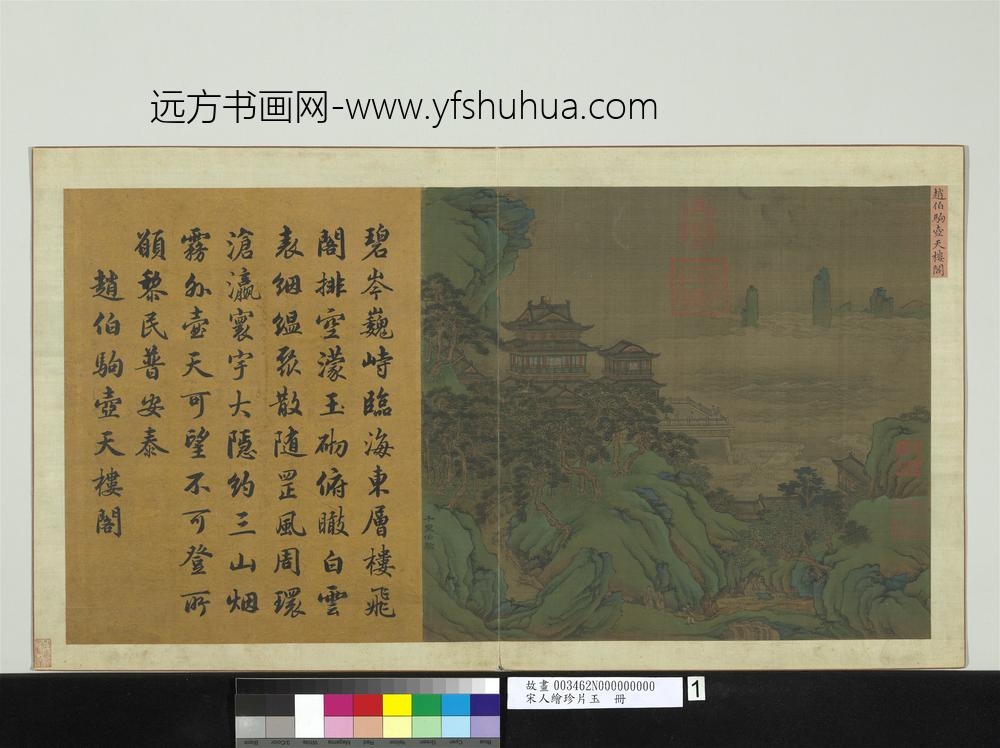 远方书画网-www.yfshuhua.com
趙伯駒壺天樓閣
碧岑巍峙臨海東層樓飛
閣排空濛玉砌俯瞰白雲
表絪縕聚散随罡風周環
滄瀛寰宇大隱約三山烟
霧外壺天可望不可登所
願黎民普安泰
趙伯駒壺天樓閣
故畫 003462N000000000
宋人繪珍片玉 冊
1